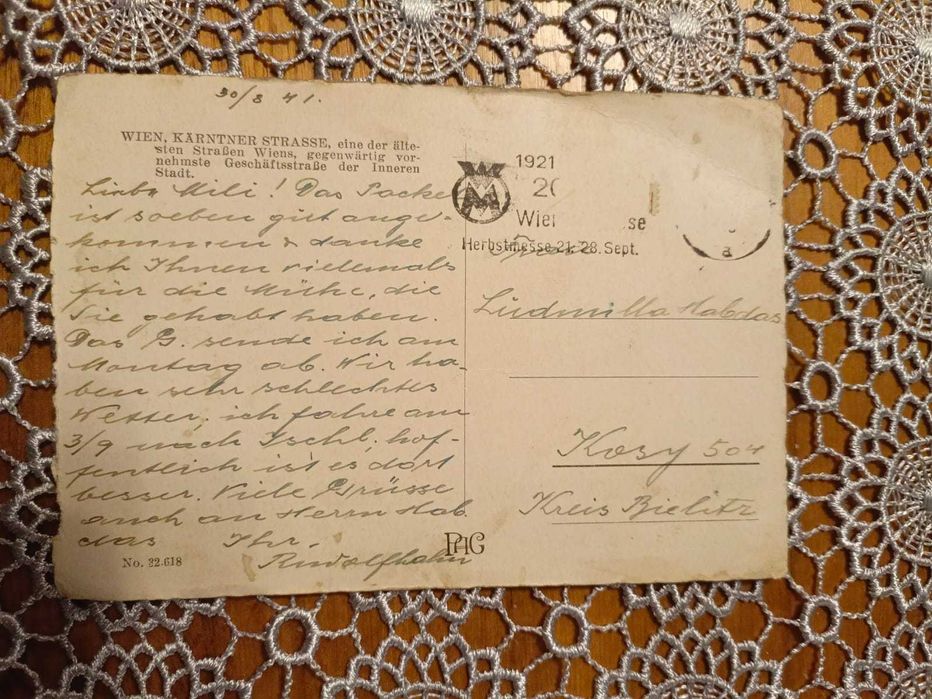 30/8 41.
WIEN, KÄRNTNER STRASSE, eine der älte-
sten Straßen Wiens, gegenwärtig vor-
nehmste Geschäftsstraße der Inneren
Stadt.
Liebe Mili! Das Packe
ist soeben gut ange-
kommen & danke
ich Ihnen vielemals
für die Mühe, die
Sie gehabt haben.
Das G. sende ich am
Montag ab. Wir ha-
ben sehr schlechtes
Wetter, ich fahre am
3/9 nach Ischl, hof-
fentlich ist es dort
besser. Viele Grüsse
auch an Herrn Hab
das Ihr.
Rudolf Hahn
No. 22.618
PAG
WM
1921
Wien
se
Herbstmesse 21.-28. Sept.
Ludmilla Habdas
Kozy 504
Kreis Bielitz